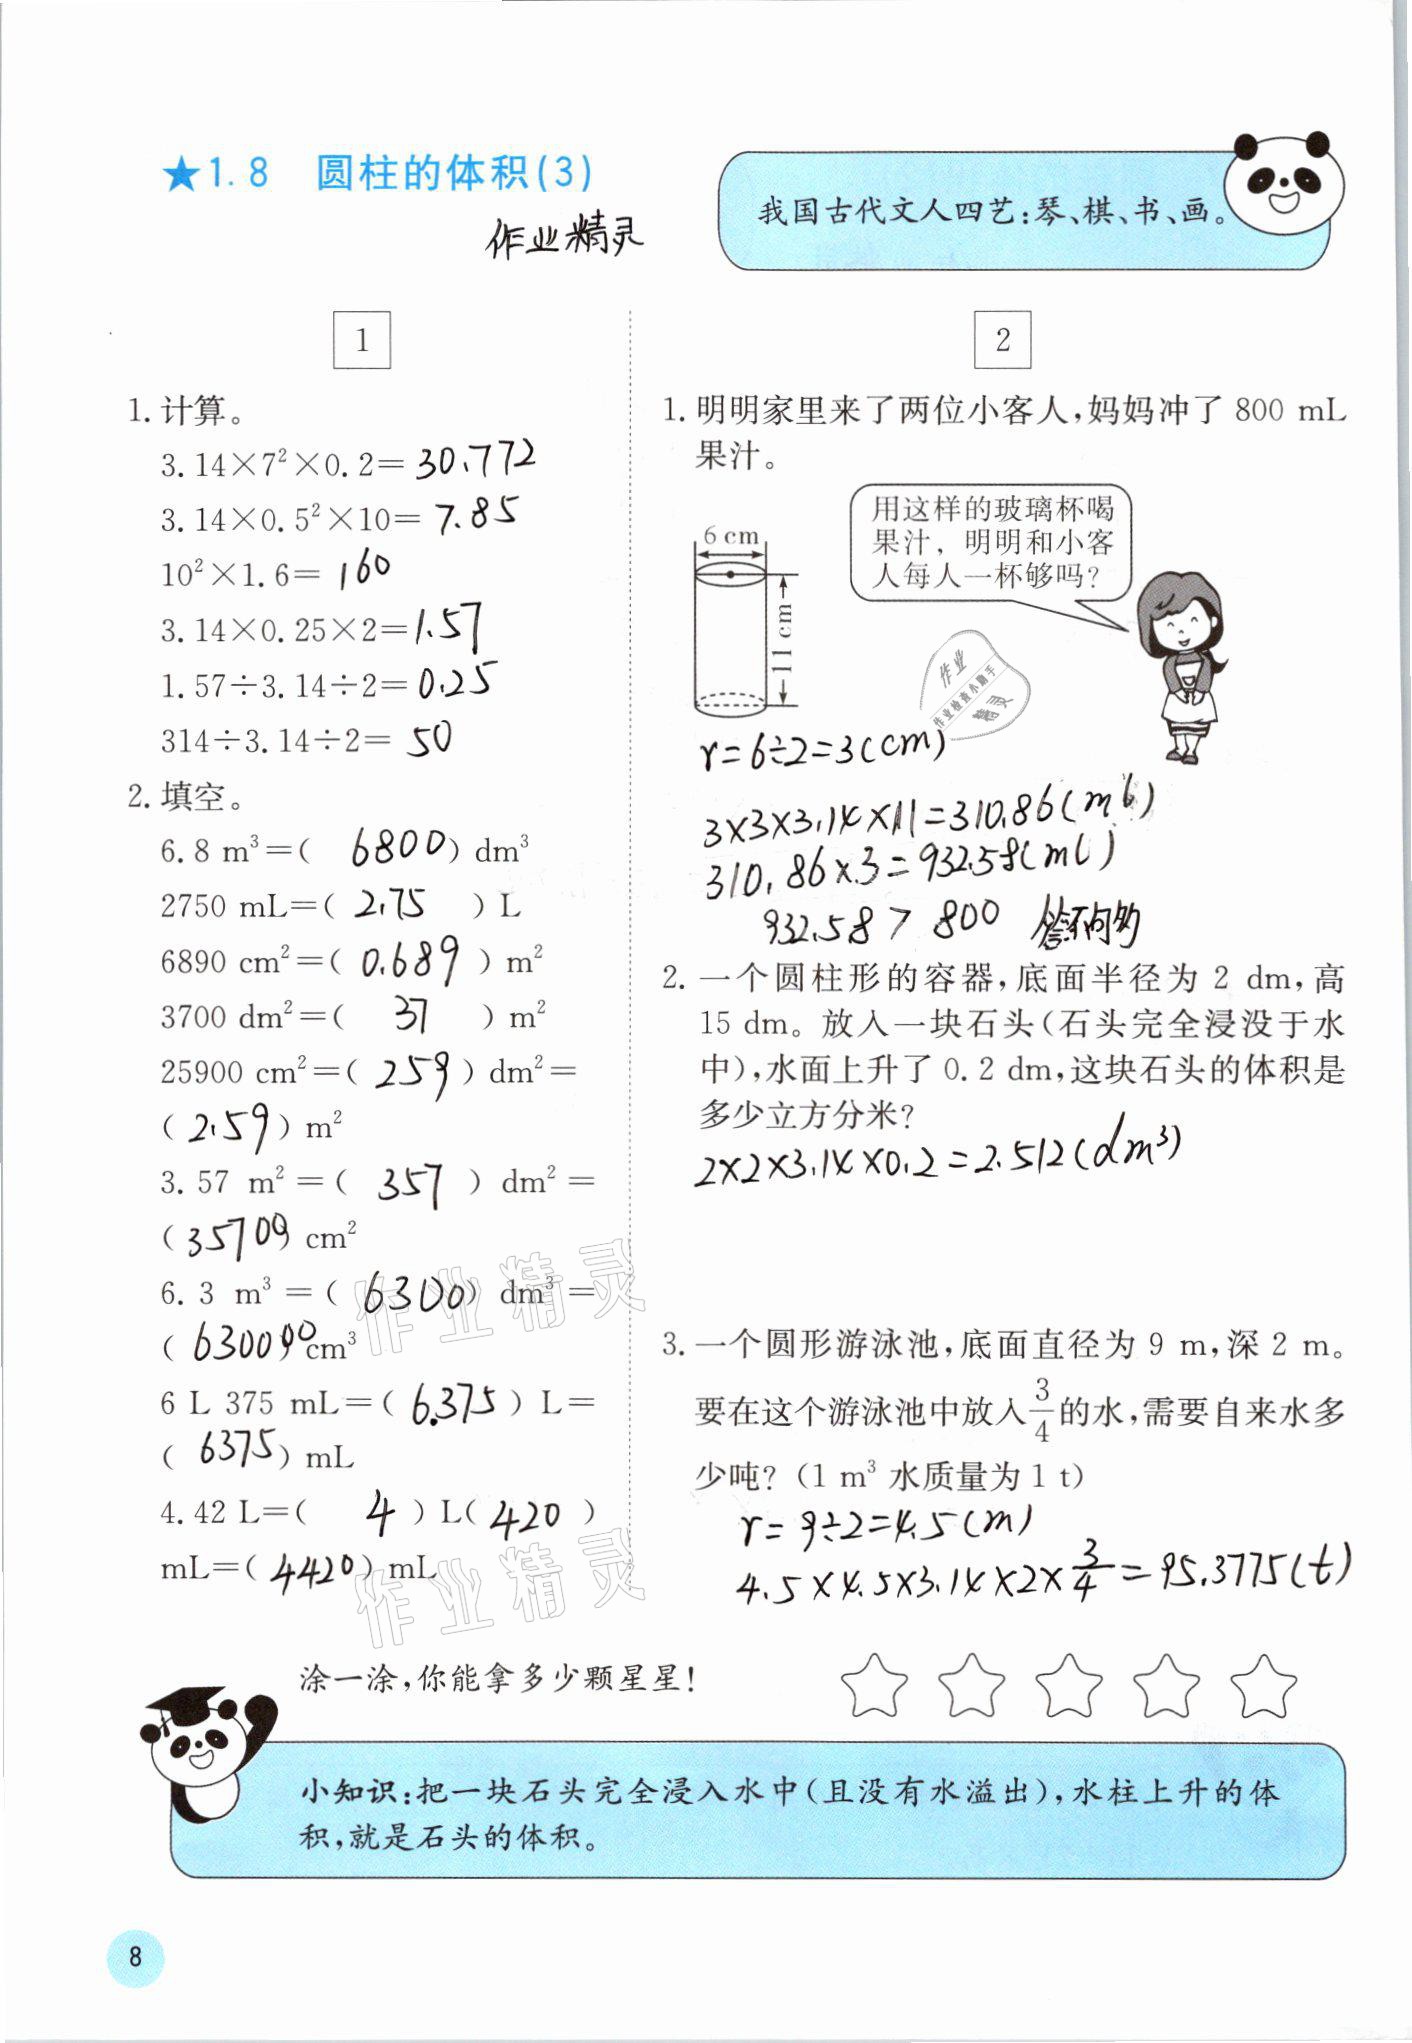 ★1.8 圆柱的体积(3)
作业精灵
我国古代文人四艺:琴、棋、书、画。
1
1. 计算。
3.14×7²×0.2=30.772
3.14×0.5²×10=7.85
10²×1.6=160
3.14×0.25×2=1.57
1.57÷3.14÷2=0.25
314÷3.14÷2=50
2. 填空。
6.8 m³=( 6800 ) dm³
2750 mL=( 2.75 ) L
6890 cm²=( 0.689 ) m²
3700 dm²=( 37 ) m²
25900 cm²=( 259 ) dm²=
( 2.59 ) m²
3.57 m²=( 357 ) dm²=
( 35700 ) cm²
6.3 m³=( 6300 ) dm³=
( 6300000 ) cm³
6 L 375 mL=( 6.375 ) L=
( 6375 ) mL
4.42 L=( 4 ) L( 420 )
mL=( 4420 ) mL
2
1. 明明家里来了两位小客人,妈妈冲了 800 mL
果汁。
用这样的玻璃杯喝
果汁，明明和小客
人每人一杯够吗?
6 cm
11 cm
作业
作业检查小助手
精灵
r=6÷2=3(cm)
3×3×3.14×11=310.86(ml)
310.86×3=932.58(ml)
932.58>800 答:不够
2. 一个圆柱形的容器,底面半径为 2 dm,高
15 dm。放入一块石头(石头完全浸没于水
中),水面上升了 0.2 dm,这块石头的体积是
多少立方分米?
2×2×3.14×0.2=2.512(dm³)
3. 一个圆形游泳池,底面直径为 9 m,深 2 m。
要在这个游泳池中放入3/4的水,需要自来水多
少吨?(1 m³ 水质量为 1 t)
r=9÷2=4.5(m)
4.5×4.5×3.14×2×3/4=95.3775(t)
作业精灵
作业精灵
涂一涂,你能拿多少颗星星!
小知识:把一块石头完全浸入水中(且没有水溢出),水柱上升的体
积,就是石头的体积。
8